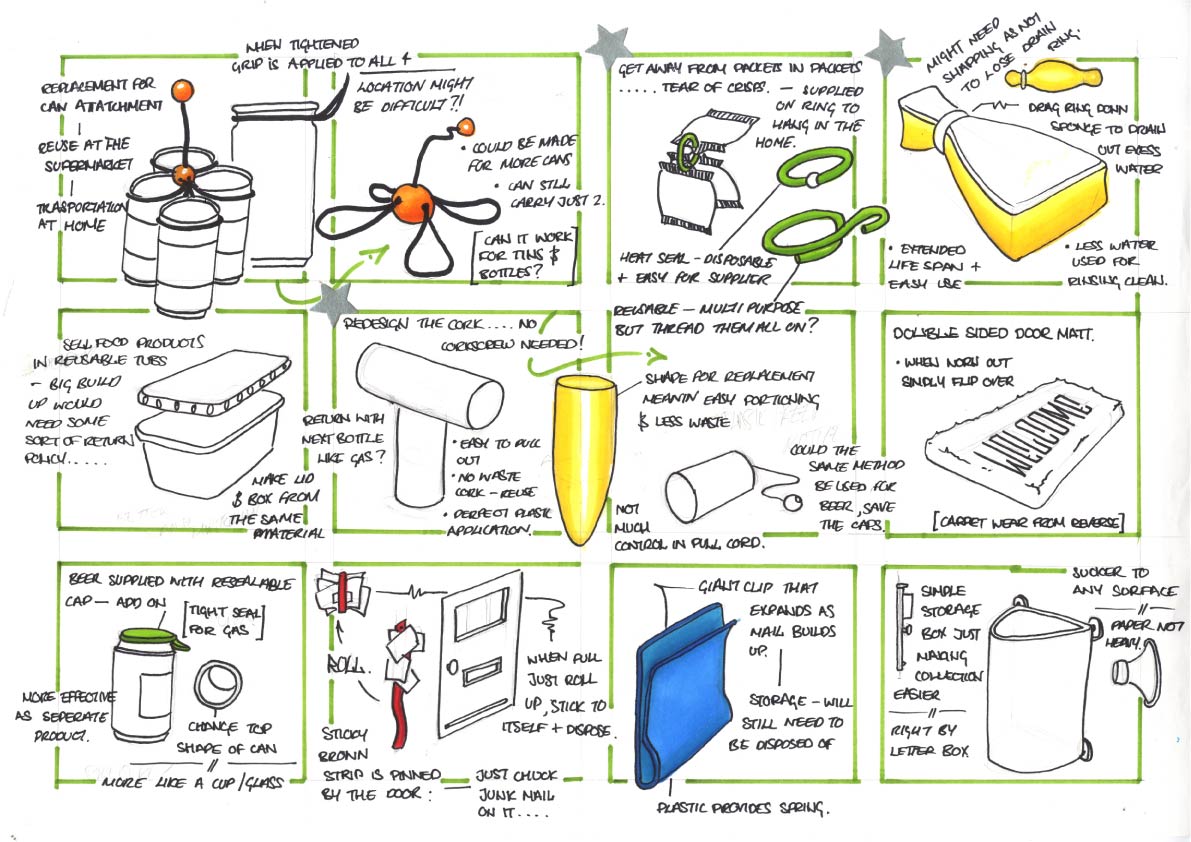 WHEN TIGHTENED
GRIP IS APPLIED TO ALL 4
REPLACEMENT FOR
CAN ATATCHMENT
REUSE AT THE
SUPERMARKET
TRASPORTATION
AT HOME
LOCATION MIGHT
BE DIFFICULT?!
• COULD BE MADE
FOR MORE CANS
• CAN STILL
CARRY JUST 2.
[CAN IT WORK
FOR TINS &
BOTTLES?]
GET AWAY FROM PACKETS IN PACKETS
..... TEAR OF CRISPS. — SUPPLIED
ON RING TO
HANG IN THE
HOME.
HEAT SEAL - DISPOSABLE
+ EASY FOR SUPPLIER
REUSABLE — MULTI PURPOSE
BUT THREAD THEM ALL ON?
MIGHT NEED
SHAPPING AS NOT
TO LOSE DRAIN
RING.
DRAG RING DOWN
SPONGE TO DRAIN
OUT EXESS
WATER
• EXTENDED
LIFE SPAN +
EASY USE
• LESS WATER
USED FOR
RINSING CLEAN.
SELL FOOD PRODUCTS
IN REUSABLE TUBS
— BIG BUILD
UP WOULD
NEED SOME
SORT OF RETURN
POLICY.....
MAKE LID
& BOX FROM
THE SAME
MATERIAL
REDESIGN THE CORK.... NO
CORKSCREW NEEDED!
RETURN WITH
NEXT BOTTLE
LIKE GAS?
• EASY TO PULL
OUT
• NO WASTE
CORK - REUSE
• PERFECT PLASTIC
APPLICATION.
SHAPE FOR REPLALEMENT
MEANIN EASY PORTIONING
& LESS WASTE
COULD THE
SAME METHOD
BE USED FOR
BEER, SAVE
THE CAPS.
NOT
MUCH
CONTROL IN PULL CORD.
DOUBLE SIDED DOOR MATT.
• WHEN WORN OUT
SIMPLY FLIP OVER
WELCOME
[CARPET WEAR FROM REVERSE]
BEER SUPPLIED WITH RESEALABLE
CAP — ADD ON
[TIGHT SEAL
FOR GAS]
MORE EFFECTIVE
AS SEPERATE
PRODUCT.
CHANGE TOP
SHAPE OF CAN
//
MORE LIKE A CUP/GLASS
ROLL.
STICKY
BROWN
STRIP IS PINNED
BY THE DOOR:
WHEN FULL
JUST ROLL
UP, STICK TO
ITSELF + DISPOSE.
JUST CHUCK
JUNK MAIL
ON IT....
GIANT CLIP THAT
EXPANDS AS
MAIL BUILDS
UP.
STORAGE - WILL
STILL NEED TO
BE DISPOSED OF
PLASTIC PROVIDES SPRING.
SIMPLE
STORAGE
BOX JUST
MAKING
COLLECTION
EASIER
//
RIGHT BY
LETTER BOX
SUCKER TO
ANY SURFACE
//
PAPER NOT
HEAVY.